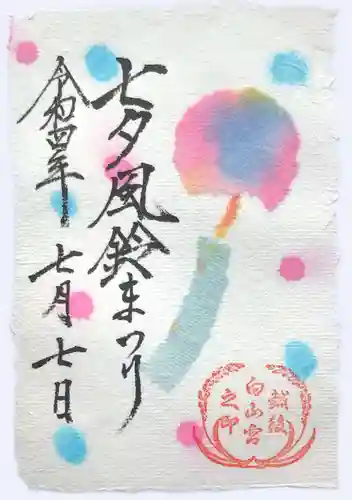 七夕風鈴まつり
令和四年
七月七日
越後
白山宮
之印